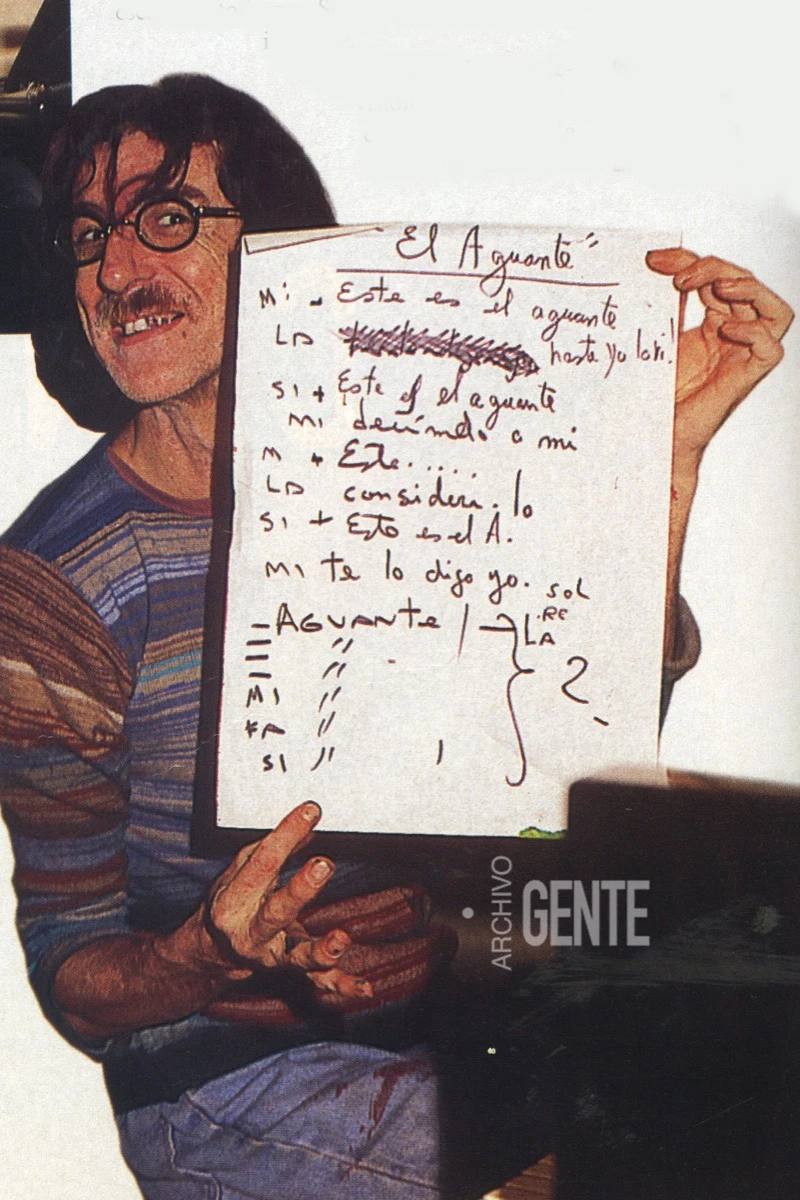 "El Aguante"
Mi - Este es el aguante
LA hasta yo lo vi!
SI + Este es el aguante
MI decímelo a mi
M + Este.....
LA consideralo
SI + Esto es el A.
MI te lo digo yo.
SOL
- AGUANTE / RE
LA
"
"
MI " 2
FA "
SI "
ARCHIVO GENTE